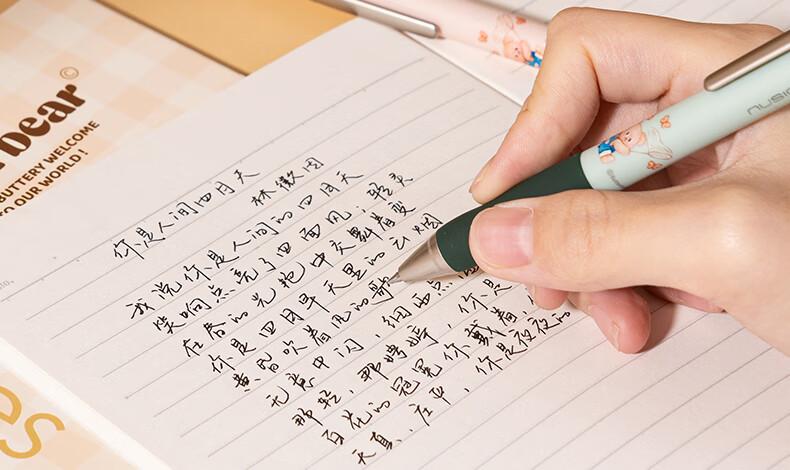 bear ©
BUTTERY WELCOME
TO OUR WORLD!
你是人间四月天
林徽因
我说你是人间的四月天
笑响点亮了四面风；轻灵
在春的光艳中交舞着变
你是四月早天里的云烟
黄昏吹着风的
无意中闪，细雨点
那轻，那娉婷，你是
百花的冠冕你戴着，
天真，庄严，你是夜夜的
es